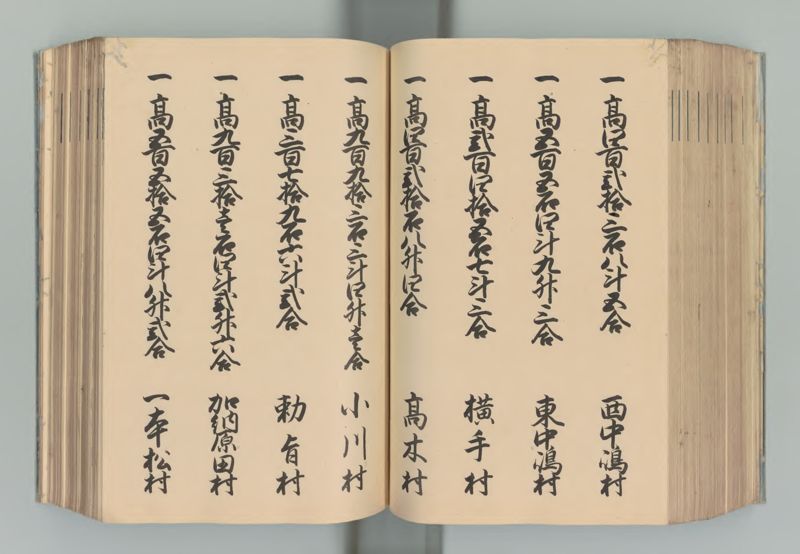 一 高四百弐拾三石八斗五合 西中嶋村
一 高五百五石四斗九升三合 東中嶋村
一 高弐百四拾五石七斗三合 横手村
一 高四百弐拾石八升四合 高木村
一 高九百九拾三石三斗四升壱合 小川村
一 高三百七拾九石六斗弐合 勅旨村
一 高九百三拾壱石四斗弐升六合 加納原田村
一 高五百五拾五石四斗八升弐合 一本松村